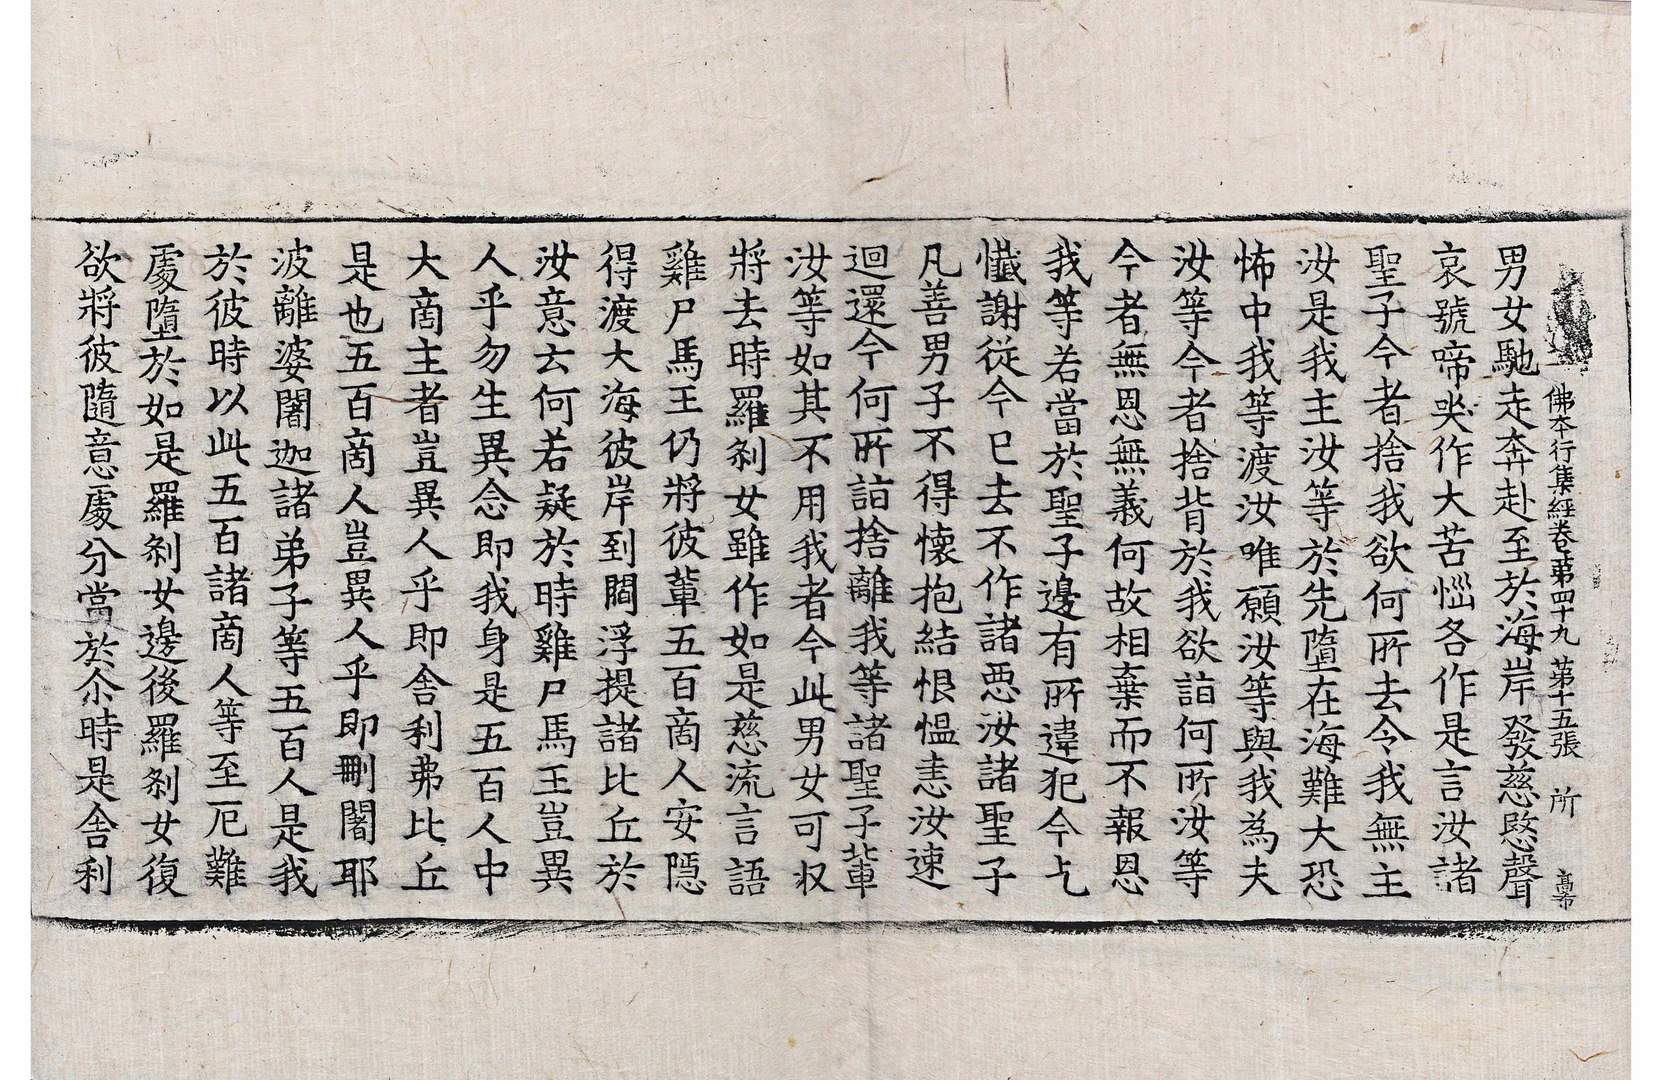 佛本行集經卷第四十九 第十五張 所 高希
男女馳走奔赴至於海岸發慈愍聲
哀號啼哭作大苦惱各作是言汝諸
聖子今者捨我欲何所去令我無主
汝是我主汝等於先墮在海難大恐
怖中我等渡汝唯願汝等與我為夫
汝等今者捨背於我欲詣何所汝等
今者無恩無義何故相棄而不報恩
我等若當於聖子邊有所違犯今乞
懺謝從今已去不作諸惡汝諸聖子
凡善男子不得懷抱結恨慍恚汝速
迴還今何所詣捨離我等諸聖子輩
汝等如其不用我者今此男女可收
將去時羅剎女雖作如是慈流言語
雞尸馬王仍將彼輩五百商人安隱
得渡大海彼岸到閻浮提諸比丘於
汝意云何若疑於時雞尸馬王豈異
人乎勿生異念即我身是五百人中
大商主者豈異人乎即舍利弗比丘
是也五百商人豈異人乎即刪闍耶
波離婆闍迦諸弟子等五百人是我
於彼時以此五百諸商人等至厄難
處墮於如是羅剎女邊後羅剎女復
欲將彼隨意處分當於尒時是舍利